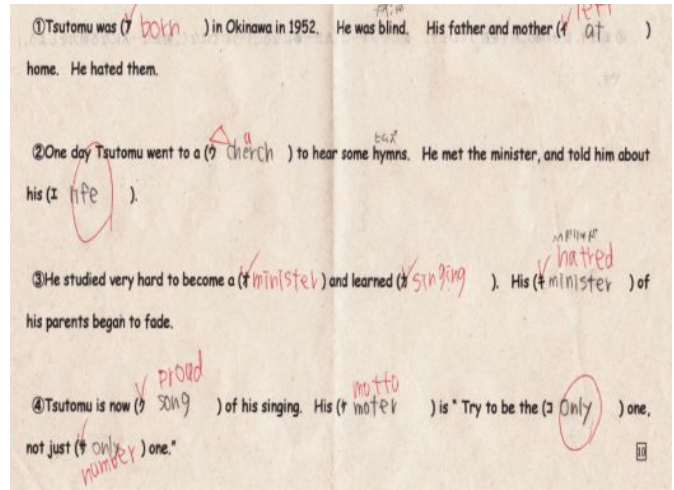 left
①Tsutomu was (ア born ) in Okinawa in 1952. He was blind. His father and mother (イ at )
home. He hated them.
②One day Tsutomu went to a (ウ cherch ) to hear some hymns. He met the minister, and told him about
a
his (エ life ).
hatred
③He studied very hard to become a (オ minister ) and learned (カ singing ). His (キ minister ) of
his parents began to fade.
proud motto
④Tsutomu is now (ク song ) of his singing. His (ケ moter ) is " Try to be the (コ only ) one,
not just (サ only ) one."
number
10